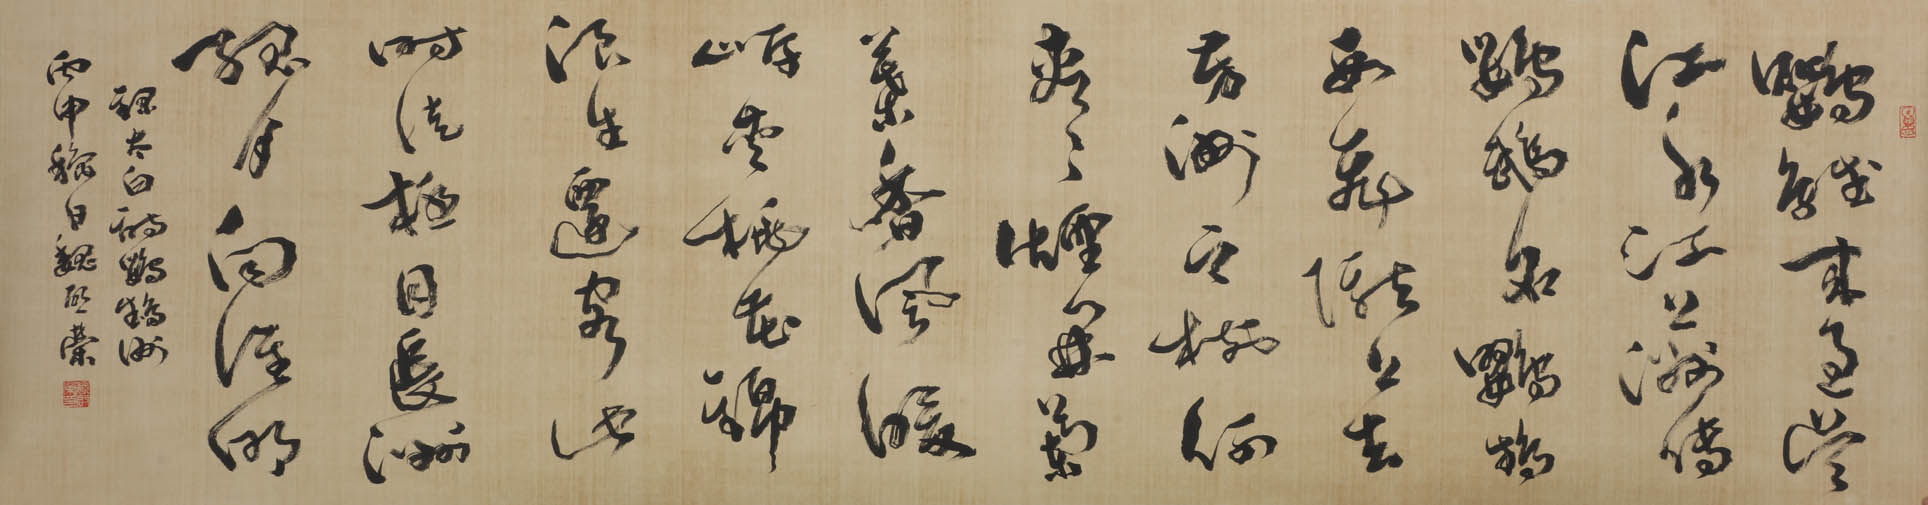 鸚鵡來過吳
江水江上洲傳
鸚鵡名鸚鵡
西飛隴山去
芳洲之樹何
青々煙開蘭
葉香風暖
岸夾桃花錦
浪生遷客此
時徒極目長洲
孤月向誰明
錄太白詩鸚鵡洲
丙申穐日魏榮